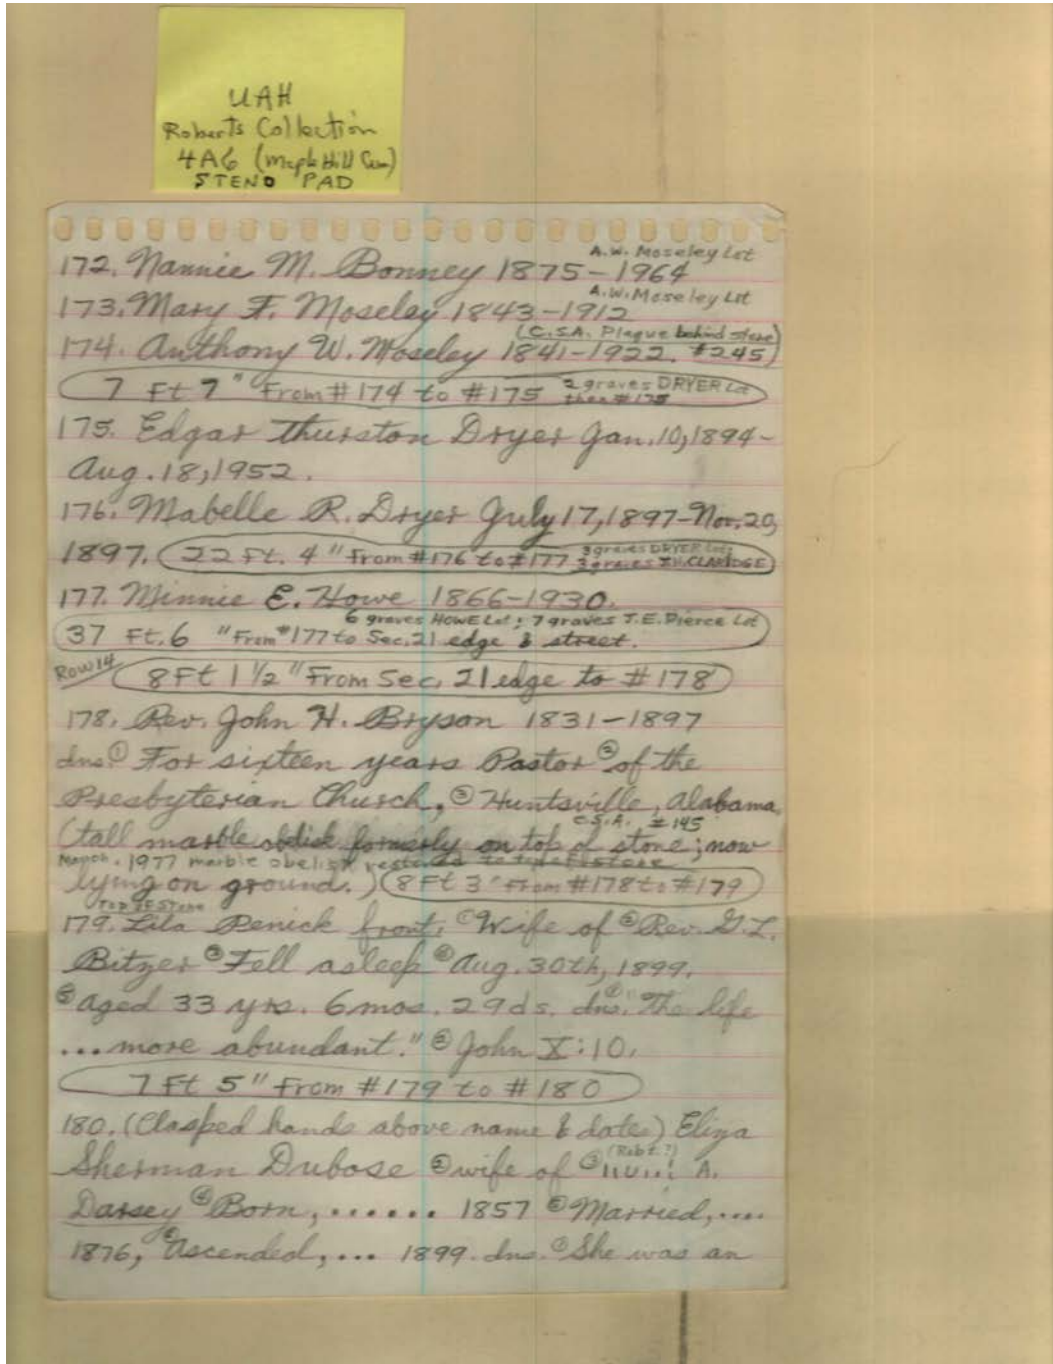 UAH
Roberts Collection
4A6 (Maple Hill Cem)
STENO PAD
A.W. Moseley Lot
172. Nannie M. Bonney 1875-1964
A.W. Moseley Lot
173. Mary F. Moseley 1843-1912
(C.S.A. Plaque behind stone)
174. Anthony W. Moseley 1841-1922. #245)
7 Ft 7" From #174 to #175 2 graves DRYER Lot
then #175
175. Edgar Thurston Dryer Jan. 10, 1894-
Aug. 18, 1952.
176. Mabelle R. Dryer July 17, 1897-Nov. 20,
1897. 22 Ft. 4" From #176 to #177 3 graves DRYER Lot;
3 graves CLARIDGE)
177. Minnie E. Howe 1866-1930.
6 graves HOWE Lot; 7 graves J.E. Pierce Lot
37 Ft. 6 "From #177 to Sec. 21 edge & street.
Row 14
8 Ft 1 1/2 "From Sec. 21 edge to #178
178. Rev. John H. Bryson 1831-1897
dns. ① For sixteen years Pastor ② of the
Presbyterian Church, ③ Huntsville, Alabama.
C.S.A. #145
(tall marble obelisk formerly on top of stone; now
March, 1977 marble obelisk restored to top of stone
lying on ground.) 8 Ft 3" From #178 to #179
Top of Stone
179. Lila Penick front: ① Wife of ② Rev. G.L.
Bitzer ③ Fell asleep ④ Aug. 30th, 1899.
⑤ aged 33 yrs. 6 mos. 29 ds. dns. ① "The life
...more abundant." ② John X:10.
7 Ft 5" From #179 to #180
180. (Clasped hands above name & dates) Eliza
Sherman Dubose ② wife of ③ A.
(Robt.?)
Darsey ④ Born, ...... 1857 ⑤ Married, ....
1876, ⑥ Ascended, ... 1899. dns. ① She was an